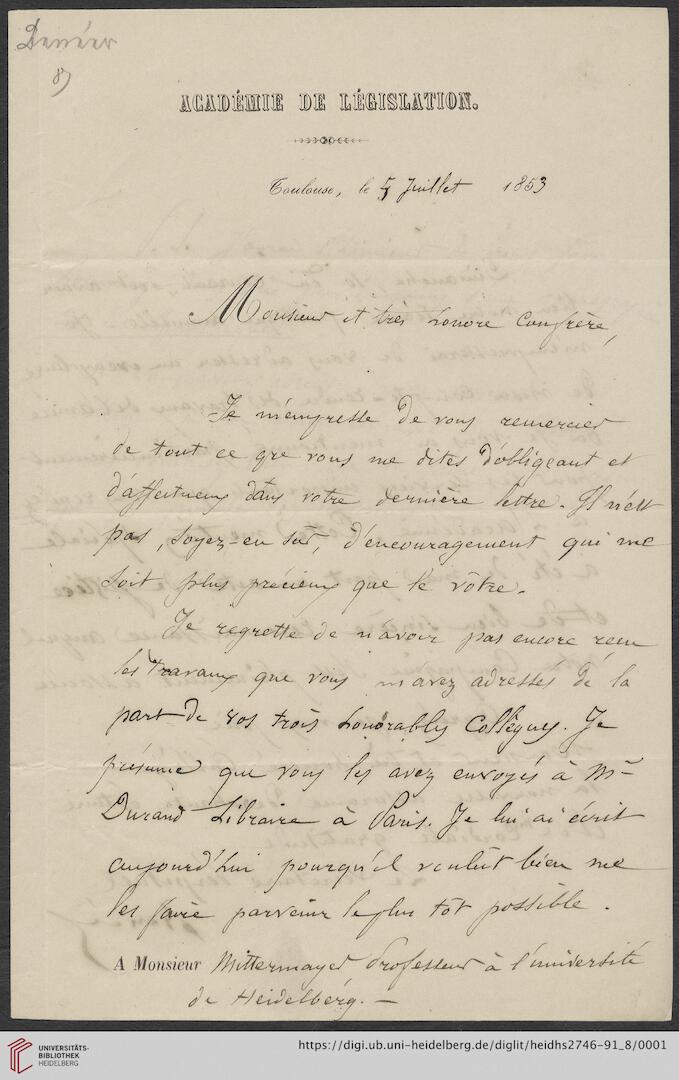 8)
ACADÉMIE DE LÉGISLATION.
Toulouse, le 5 Juillet 1853
Monsieur et très honoré Confrère,
Je m'empresse de vous remercier
de tout ce que vous me dites d'obligeant et
d'affectueux dans votre dernière lettre. Il n'est
pas, soyez-en sûr, d'encouragement qui me
soit plus précieux que le vôtre.
Je regrette de n'avoir pas encore reçu
les travaux que vous m'avez adressés de la
part de vos trois honorables Collègues. Je
présume que vous les avez envoyés à Mr
Durand Libraire à Paris. Je lui ai écrit
aujourd'hui pourqu'il voulût bien me
les faire parvenir le plus tôt possible.
A Monsieur Mittermayer Professeur à l'université
de Heidelberg. —
UNIVERSITÄTS-
BIBLIOTHEK
HEIDELBERG
https://digi.ub.uni-heidelberg.de/diglit/heidhs2746-91_8/0001